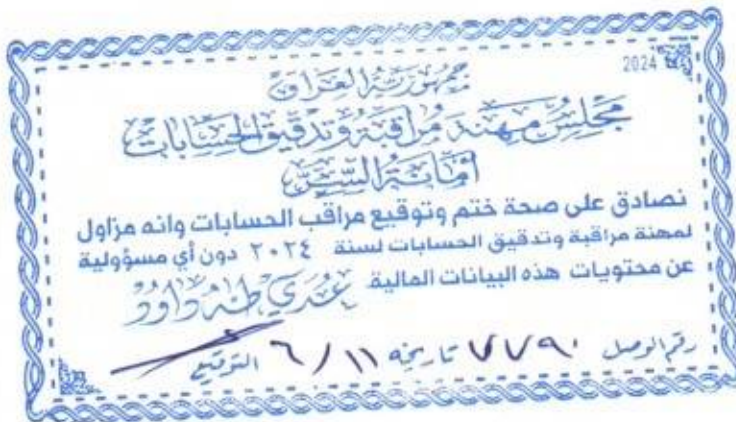 2024
جمهورية العراق
مجلس مهنة مراقبة وتدقيق الحسابات
أمانة السر
نصادق على صحة ختم وتوقيع مراقب الحسابات وانه مزاول
لمهنة مراقبة وتدقيق الحسابات لسنة ٢٠٢٤ دون أي مسؤولية
عن محتويات هذه البيانات المالية
عدي طه داود
رقم الوصل ٧٧٩٠ تاريخه ٦/١١ التوقيع